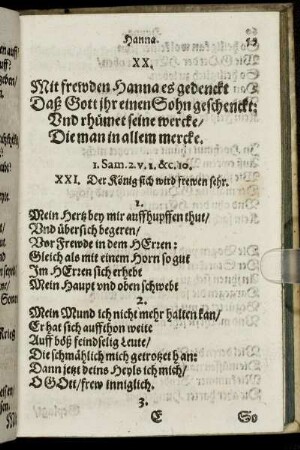 Hanna.
XX.
Mit frewden Hanna es gedenckt
Daß Gott jhr einen Sohn geschenckt:
Vnd rhümet seine wercke/
Die man in allem mercke.
1. Sam. 2. v. 1. &c. 10.
XXI. Der König sich wird frewen sehr.
1.
Mein Hertz bey mir auffhupffen thut/
Vnd übersich begeren/
Vor Frewde in dem HErren:
Gleich als mit einem Horn so gut
Im HErren sich erhebt
Mein Haupt vnd oben schwebt
2.
Mein Mund ich nicht mehr halten kan/
Er hat sich auffthon weite
Auff böß feindselig Leute/
Die schmählich mich getrotzet han:
Dann jetzt deins Heyls ich mich/
O GOtt/ frew inniglich.
3.
E So